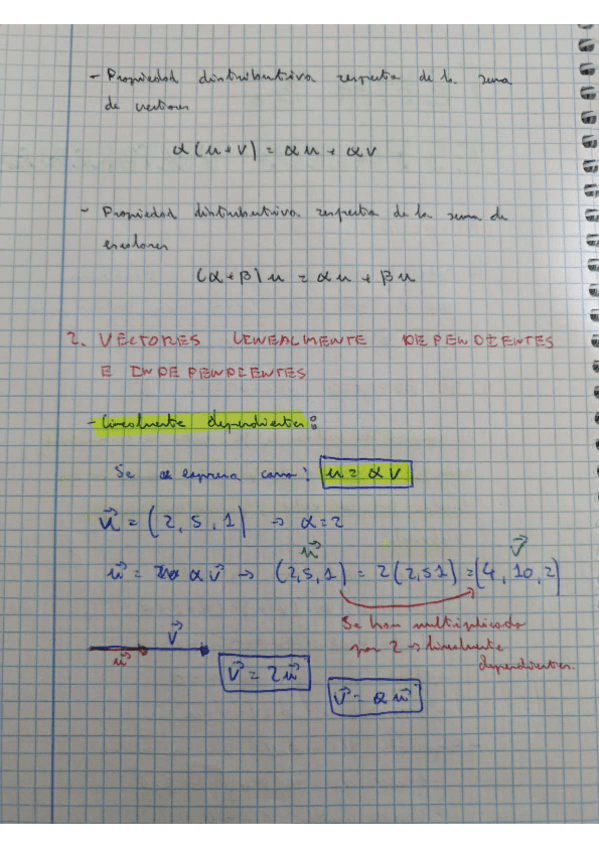 - Propiedad distributiva respecto de la suma
de vectores
α(u+v) = αu + αv
- Propiedad distributiva respecto de la suma de
escalares
(α+β)u = αu + βu
2. VECTORES LINEALMENTE DEPENDIENTES
E INDEPENDIENTES
- Linealmente dependientes:
Se expresa como: u = αv
u⃗ = (2, 5, 1) → α=2
u⃗ v⃗
u⃗ = αv⃗ → (2,5,1) = 2(2,5 1) = (4, 10, 2)
Se han multiplicado
por 2 → linealmente
dependientes.
v⃗
u⃗
v⃗ = 2u⃗
v⃗ = αu⃗